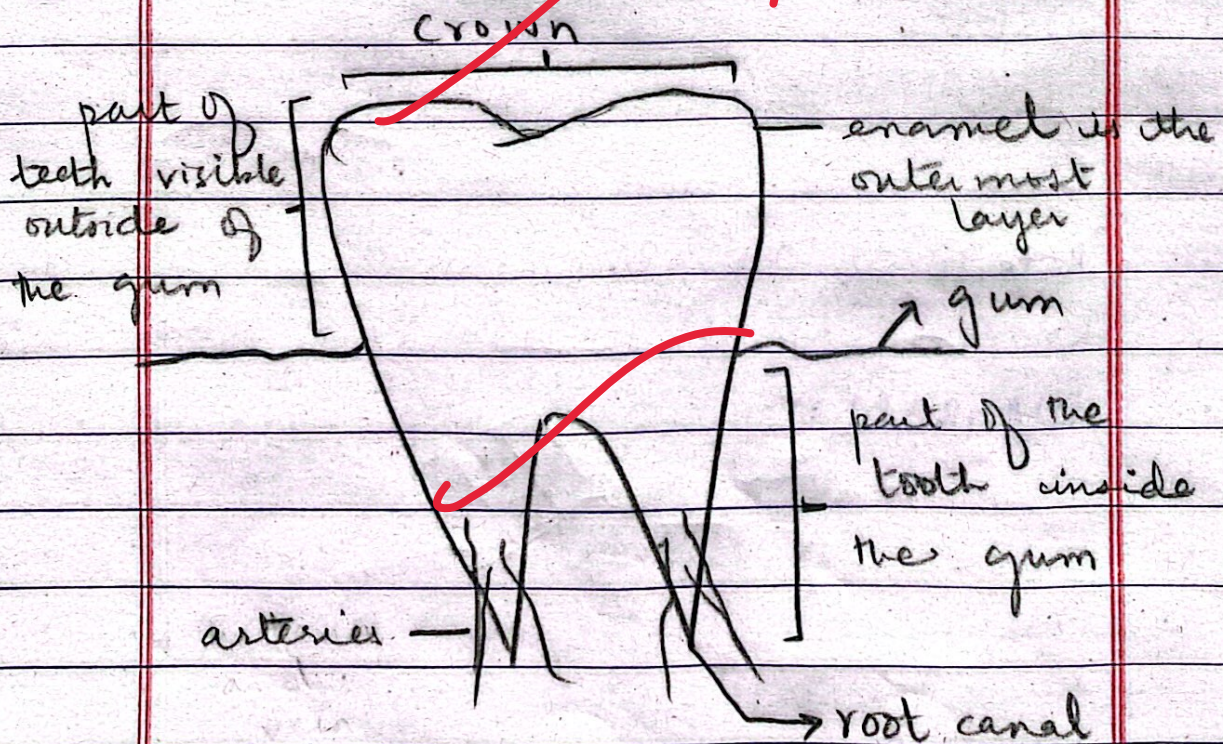 Crown
part of
teeth visible
outside of
the gum
enamel is the
outermost
layer
gum
part of the
tooth inside
the gum
arteries
root canal